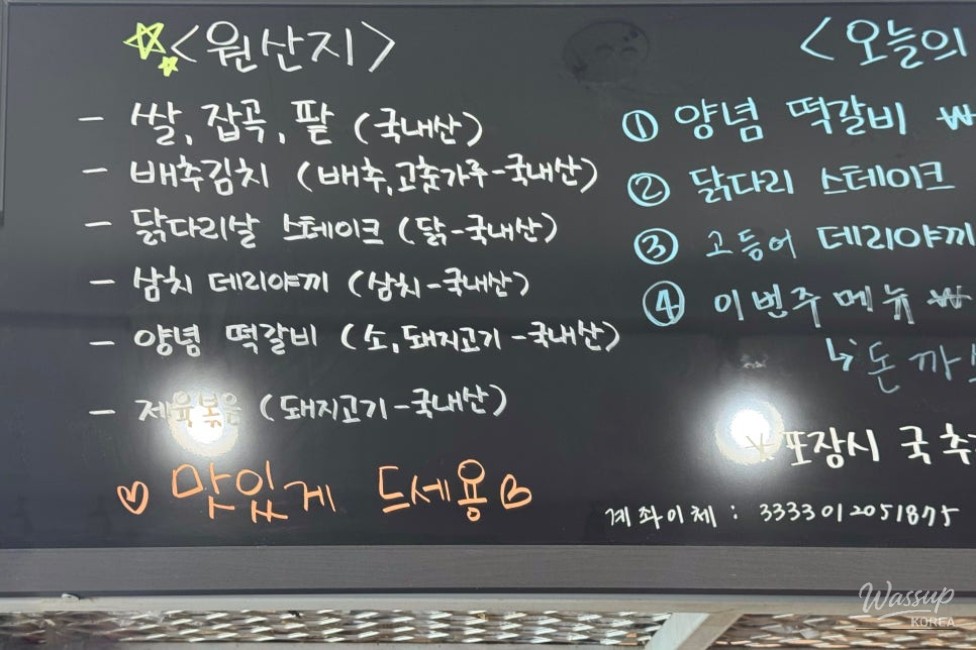 <원산지>
- 쌀, 잡곡, 팥 (국내산)
- 배추김치 (배추, 고춧가루-국내산)
- 닭다리살 스테이크 (닭-국내산)
- 삼치 데리야끼 (삼치-국내산)
- 양념 떡갈비 (소, 돼지고기-국내산)
- 제육볶음 (돼지고기-국내산)
♡ 맛있게 드세용♡
<오늘의
① 양념 떡갈비 ₩
② 닭다리 스테이크
③ 고등어 데리야끼
④ 이번주 메뉴 ₩
↳ 돈까
※ 포장시 국 추
계좌이체 : 3333012051875
Wassup
KOREA